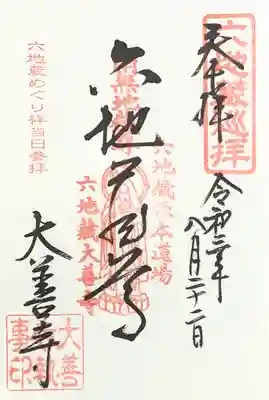 六地蔵巡拝
奉拝
令和三年
八月二十二日
六地蔵尊
六地蔵根本道場
六地蔵大善寺
大善寺
大善寺執事印
六地蔵めぐり祥当日参拝